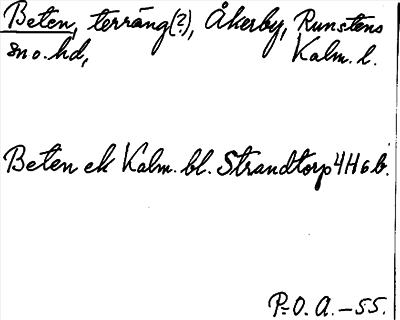 Beten, terräng(?), Åkerby, Runstens
sn o. hd, Kalm. l.
Beten ek Kalm. bl. Strandtorp 4H6b.
P.O.A. – 55.